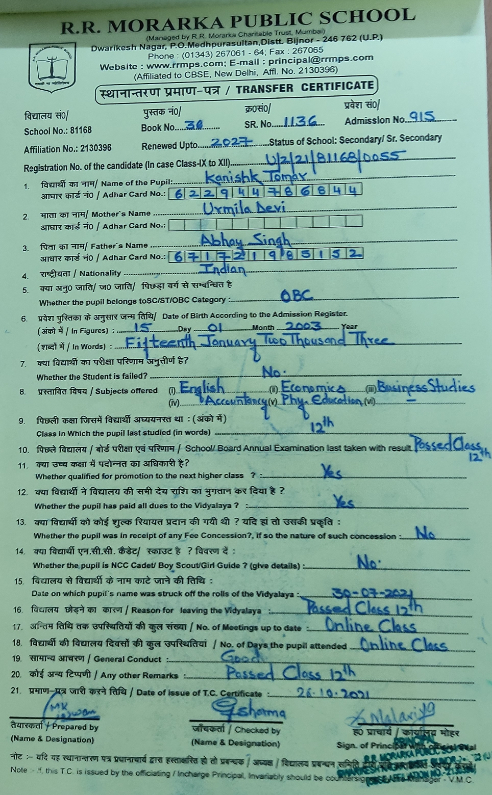 R.R. MORARKA PUBLIC SCHOOL
(Managed by R.R. Morarka Charitable Trust, Mumbai)
Dwarikesh Nagar, P.O.Medhpurasultan,Distt. Bijnor - 246 762 (U.P.)
Phone : (01343) 267061 - 64; Fax : 267065
Website : www.rrmps.com; E-mail : principal@rrmps.com
(Affiliated to CBSE, New Delhi, Affl. No. 2130396)
स्थानान्तरण प्रमाण-पत्र / TRANSFER CERTIFICATE
विद्यालय सं0/ पुस्तक नं0/ क्र0सं0/ प्रवेश सं0/
School No.: 81168 Book No. SR. No. 1136 Admission No. 915
Affiliation No.: 2130396 Renewed Upto 2027 Status of School: Secondary/ Sr. Secondary
Registration No. of the candidate (In case Class-IX to XII) U/2/21/81168/0055
1. विद्यार्थी का नाम/ Name of the Pupil: Kanishk Tomar
आधार कार्ड नं0 / Adhar Card No.: 622944786844
2. माता का नाम/ Mother's Name Urmila Devi
आधार कार्ड नं0 / Adhar Card No.:
3. पिता का नाम/ Father's Name Abhay Singh
आधार कार्ड नं0 / Adhar Card No.: 671721985152
4. राष्ट्रीयता / Nationality Indian
5. क्या अनु0 जाति/ ज0 जाति/ पिछड़ा वर्ग से सम्बन्धित है
Whether the pupil belongs toSC/ST/OBC Category : OBC
6. प्रवेश पुस्तिका के अनुसार जन्म तिथि/ Date of Birth According to the Admission Register.
(अंको में/ In Figures) : 15 Day 01 Month 2003 Year
(शब्दों में / In Words) : Fifteenth January Two Thousand Three
7. क्या विद्यार्थी का परीक्षा परिणाम अनुत्तीर्ण है?
Whether the Student is failed? No.
8. प्रस्तावित विषय / Subjects offered (i) English (ii) Economics (iii) Business Studies
(iv) Accountancy (v) Phy. Education (vi) —
9. पिछली कक्षा जिसमें विद्यार्थी अध्ययनरत था : (अंको में)
Class in Which the pupil last studied (in words) 12th
10. पिछले विद्यालय / बोर्ड परीक्षा एवं परिणाम / School/ Board Annual Examination last taken with result Passed Class 12th
11. क्या उच्च कक्षा में पदोन्नत का अधिकारी है?
Whether qualified for promotion to the next higher class ? : Yes
12. क्या विद्यार्थी ने विद्यालय की सभी देय राशि का भुगतान कर दिया है ?
Whether the pupil has paid all dues to the Vidyalaya ? : Yes
13. क्या विद्यार्थी को कोई शुल्क रियायत प्रदान की गयी थी ? यदि हां तो उसकी प्रकृति :
Whether the pupil was in receipt of any Fee Concession?, if so the nature of such concession : No
14. क्या विद्यार्थी एन.सी.सी. कैडेट/ स्काउट है ? विवरण दें :
Whether the pupil is NCC Cadet/ Boy Scout/Girl Guide ? (give details) : No.
15. विद्यालय से विद्यार्थी के नाम काटे जाने की तिथि :
Date on which pupil's name was struck off the rolls of the Vidyalaya : 30-07-2021
16. विद्यालय छोड़ने का कारण / Reason for leaving the Vidyalaya Passed Class 12th
17. अन्तिम तिथि तक उपस्थितियों की कुल संख्या / No. of Meetings up to date : Online Class
18. विद्यार्थी की विद्यालय दिवसों की कुल उपस्थितियां / No. of Days the pupil attended Online Class
19. सामान्य आचरण / General Conduct : Good
20. कोई अन्य टिप्पणी / Any other Remarks : Passed Class 12th
21. प्रमाण-पत्र जारी करने तिथि / Date of issue of T.C. Certificate : 26.10.2021
तैयारकर्ता / Prepared by जाँचकर्ता / Checked by ह0 प्राचार्य / मोहर
(Name & Designation) (Name & Designation) Sign. of Principal
नोट :- यदि यह स्थानान्तरण पत्र प्रधानाचार्य द्वारा हस्ताक्षरित हो तो प्रबन्धक / अध्यक्ष / विद्यालय प्रबन्धन समिति
Note :- If this T.C. is issued by the officiating / Incharge Principal, Invariably should be Manager - V.M.C.